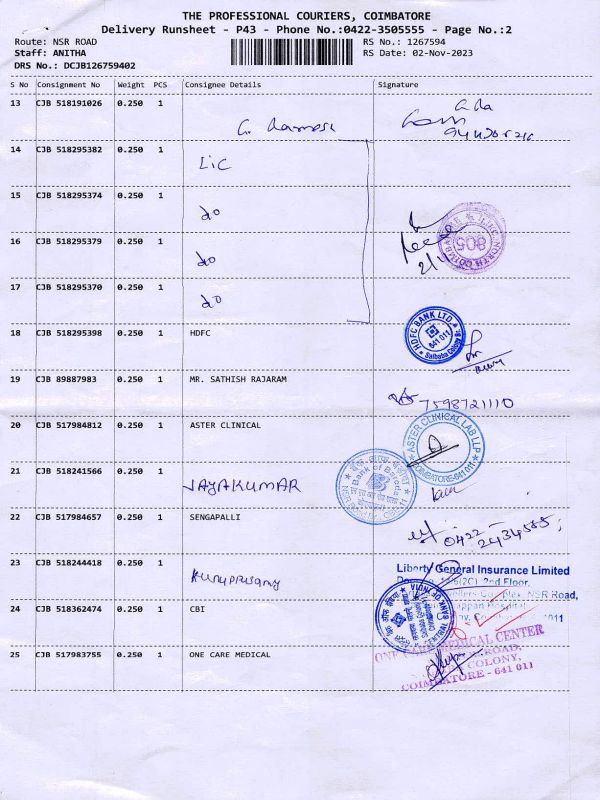 THE PROFESSIONAL COURIERS, COIMBATORE
Delivery Runsheet - P43 - Phone No.:0422-3505555 - Page No.:2
Route: NSR ROAD
RS No.: 1267594
Staff: ANITHA
RS Date: 02-Nov-2023
DRS No.: DCJB126759402
S No Consignment No Weight PCS Consignee Details Signature
13 CJB 518191026 0.250 1
14 CJB 518295382 0.250 1 LIC
15 CJB 518295374 0.250 1 do
16 CJB 518295379 0.250 1 do
17 CJB 518295370 0.250 1 do
805
18 CJB 518295398 0.250 1 HDFC
HDFC BANK LTD.
641 011
Saibaba Colony
19 CJB 89887983 0.250 1 MR. SATHISH RAJARAM
7598721110
20 CJB 517984812 0.250 1 ASTER CLINICAL
ASTER CLINICAL LAB LLP
COIMBATORE-641 011
21 CJB 518241566 0.250 1 JAYAKUMAR
Bank of Baroda
22 CJB 517984657 0.250 1 SENGAPALLI
0422-
2434555
23 CJB 518244418 0.250 1
Liberty General Insurance Limited
2nd Floor,
Complex, NSR Road,
Hospital
24 CJB 518362474 0.250 1 CBI
CENTRAL BANK OF INDIA
25 CJB 517983755 0.250 1 ONE CARE MEDICAL
ONE CARE MEDICAL CENTER
ROAD,
COLONY,
COIMBATORE - 641 011